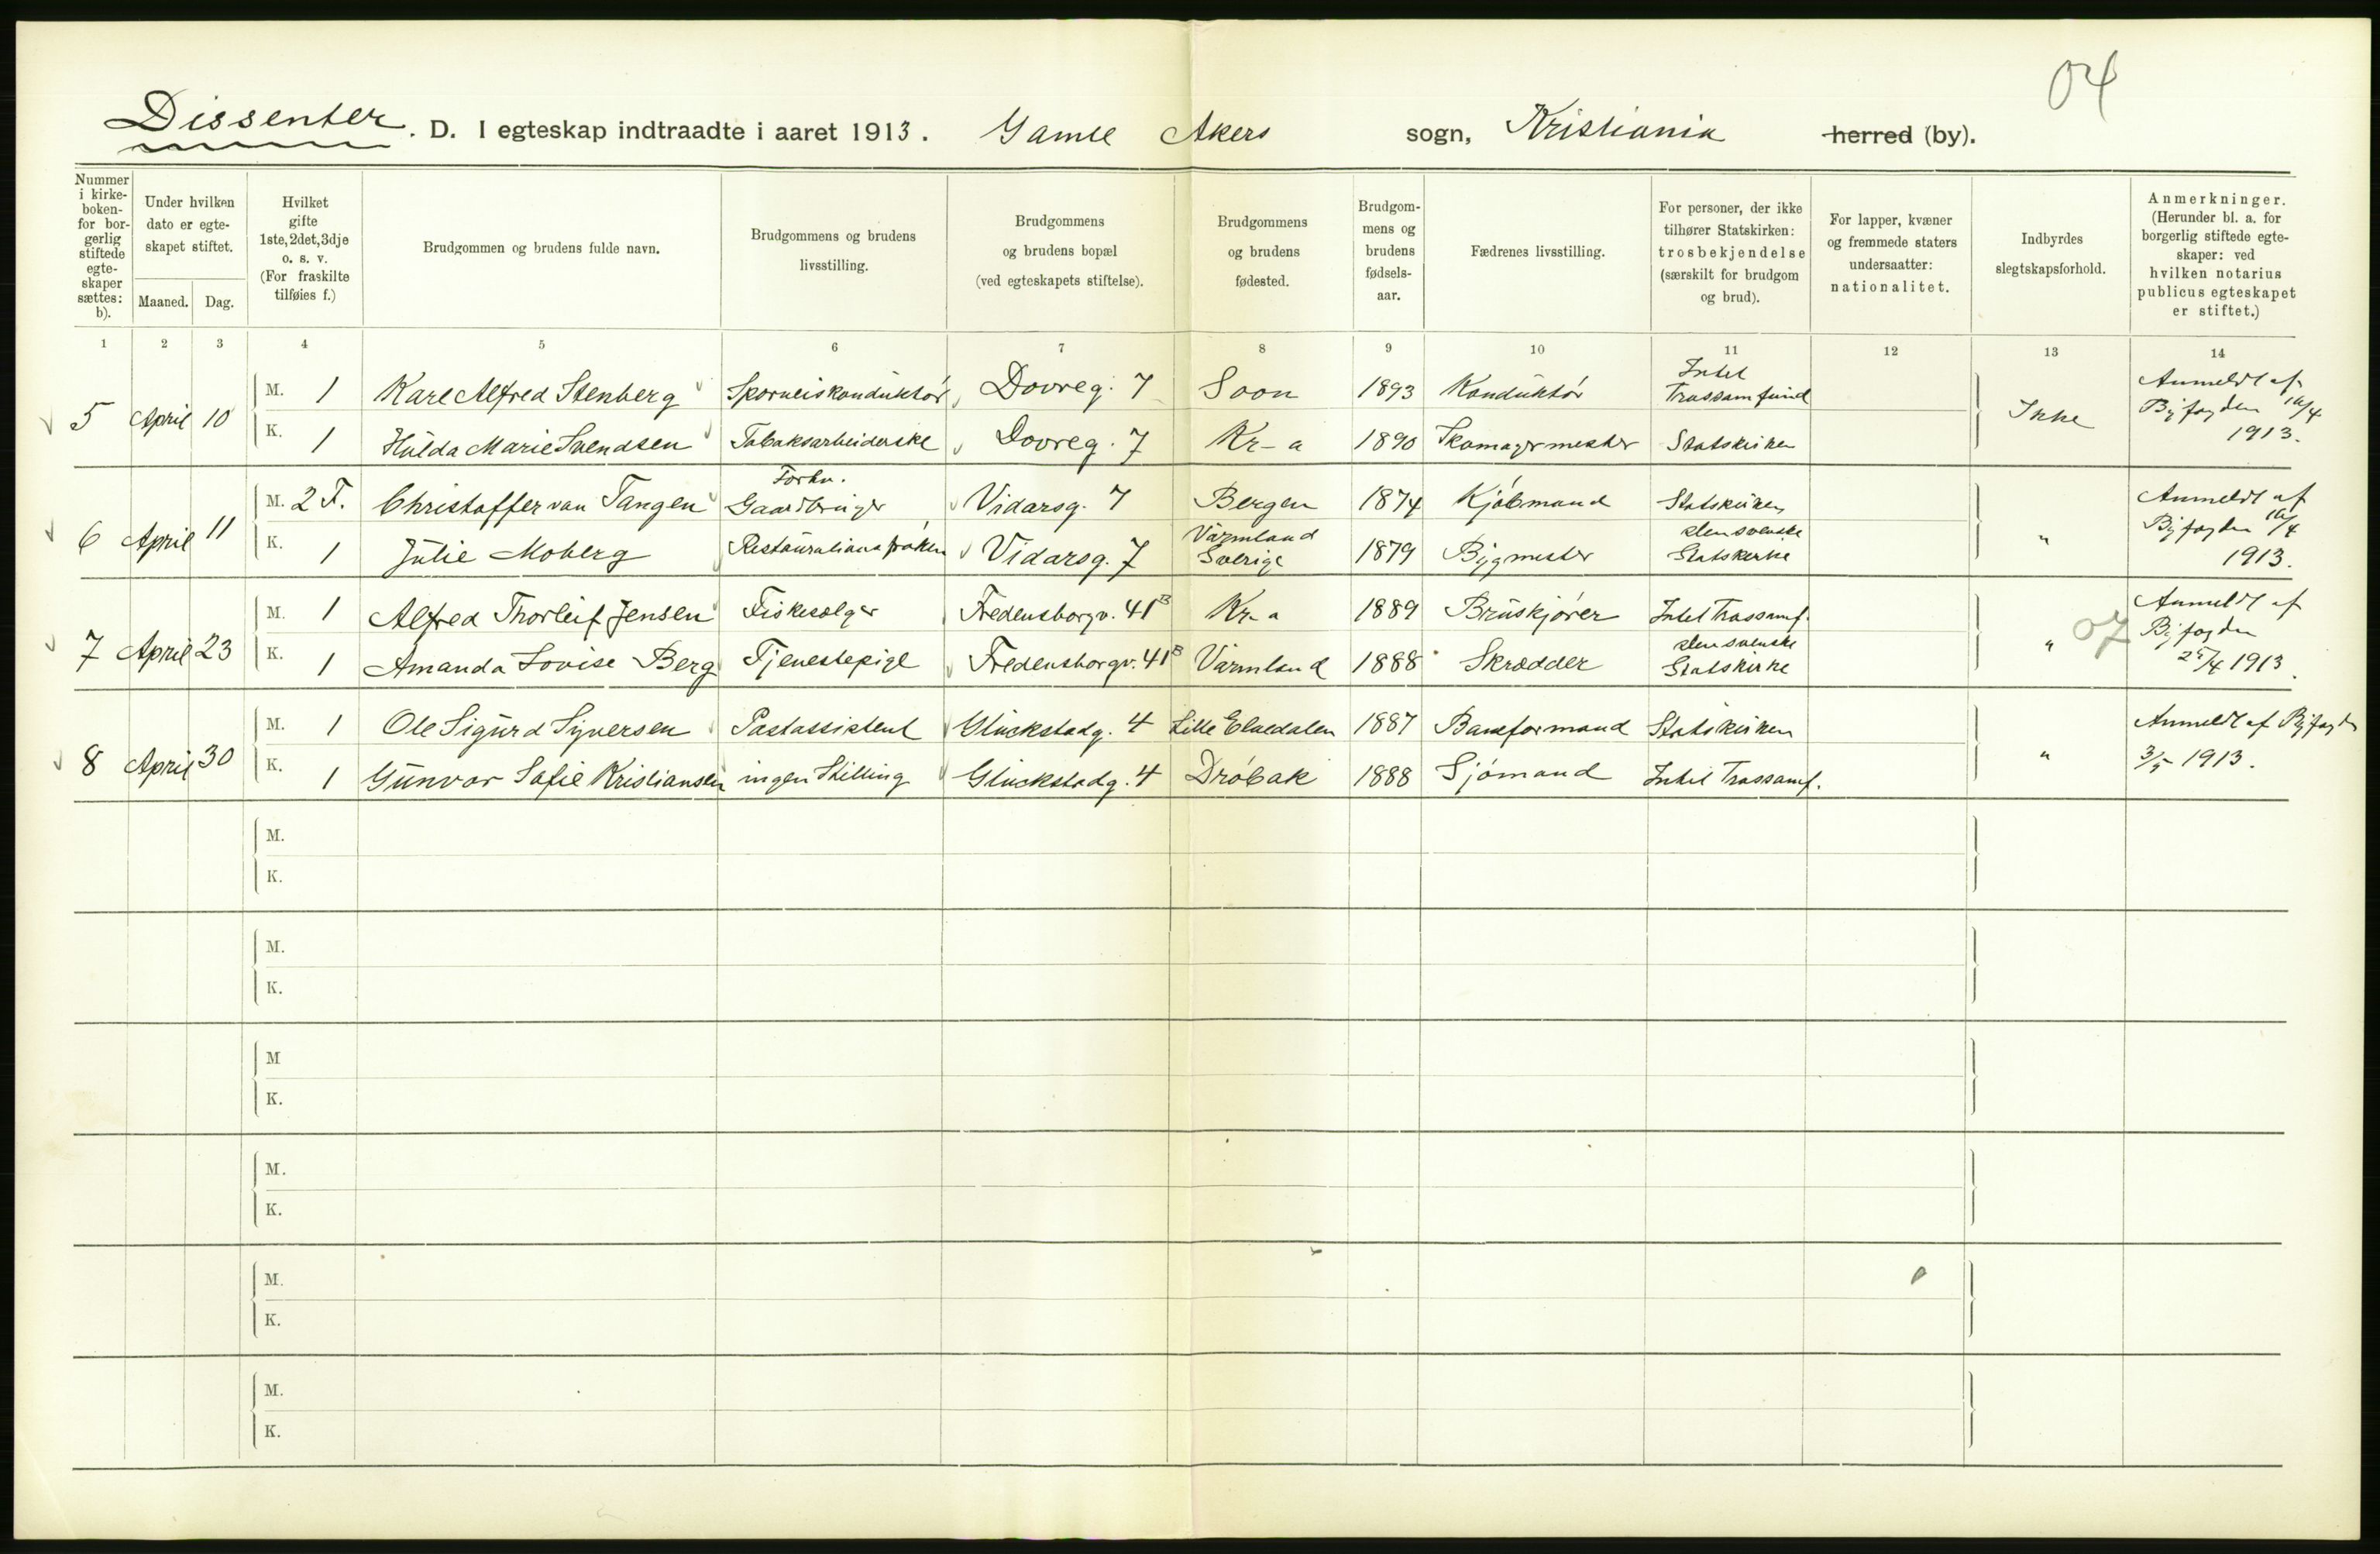 04
Dissenter. D. I egteskap indtraadte i aaret 1913. Gamle Akers sogn, Kristiania herred (by).
Nummer i kirkeboken- for borgerlig stiftede egteskaper sættes: b).
Under hvilken dato er egteskapet stiftet.
Maaned. Dag.
Hvilket gifte 1ste, 2det, 3dje o. s. v. (For fraskilte tilføies f.)
Brudgommen og brudens fulde navn.
Brudgommens og brudens livsstilling.
Brudgommens og brudens bopæl (ved egteskapets stiftelse).
Brudgommens og brudens fødested.
Brudgommens og brudens fødselsaar.
Fædrenes livsstilling.
For personer, der ikke tilhører Statskirken: trosbekjendelse (særskilt for brudgom og brud).
For lapper, kvæner og fremmede staters undersaatter: nationalitet.
Indbyrdes slegtskapsforhold.
Anmerkninger. (Herunder bl. a. for borgerlig stiftede egteskaper: ved hvilken notarius publicus egteskapet er stiftet.)
1 2 3 4 5 6 7 8 9 10 11 12 13 14
5 April 10 M. 1 Karl Alfred Stenberg Sporveiskonduktør Dovreg. 7 Soon 1893 Konduktør Intet Trossamfund Ikke Anmeldt af Byfogden 16/4 1913.
K. 1 Hulda Marie Svendsen Tobaksarbeiderske Dovreg. 7 Kr-a 1890 Skomagermester Statskirken
6 April 11 M. 2 F. Christoffer van Tangen Forhv. Gaardbruger Vidarsg. 7 Bergen 1874 Kjøbmand Statskirken " Anmeldt af Byfogden 16/4 1913.
K. 1 Julie Moberg Restaurationsfrøken Vidarsg. 7 Värmland Sverige 1879 Bygmester den svenske Statskirke
7 April 23 M. 1 Alfred Thorleif Jensen Fiskesælger Fredensborgv. 41 B Kr-a 1889 Bruskjører Intet Trossamf. " 07 Anmeldt af Byfogden 25/4 1913.
K. 1 Amanda Lovise Berg Tjenestepige Fredensborgv. 41 B Värmland 1888 Skrædder den svenske Statskirke
8 April 30 M. 1 Ole Sigurd Syversen Postassistent Glückstadg. 4 Lille Elvedalen 1887 Baneformand Statskirken " Anmeldt af Byfogden 3/5 1913.
K. 1 Gunvor Sofie Kristiansen ingen Stilling Glückstadg. 4 Drøbak 1888 Sjømand Intet Trossamf.
M.
K.
M.
K.
M
K.
M.
K.
M.
K.
M.
K.